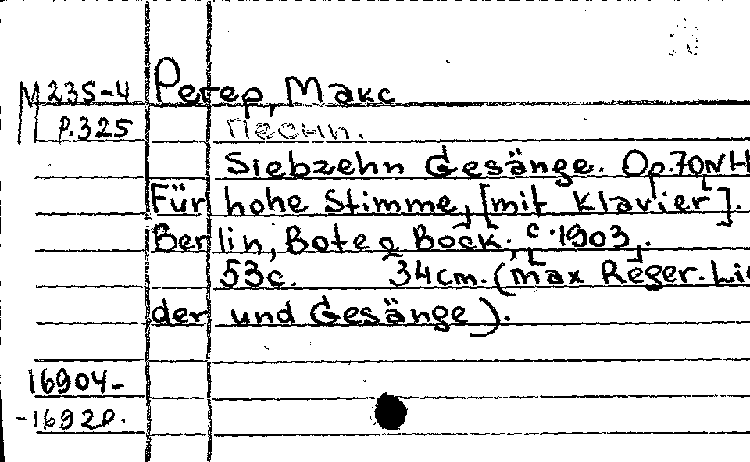 М 235-4 Регер, Макс
Р.325 Песни.
Siebzehn Gesänge. Op.70 №
Für hohe Stimme, [mit Klavier].
Berlin, Bote a Bock, c. [1903].
53с. 34cm. (Max Reger. Lie
der und Gesänge).
16904-
-16920.